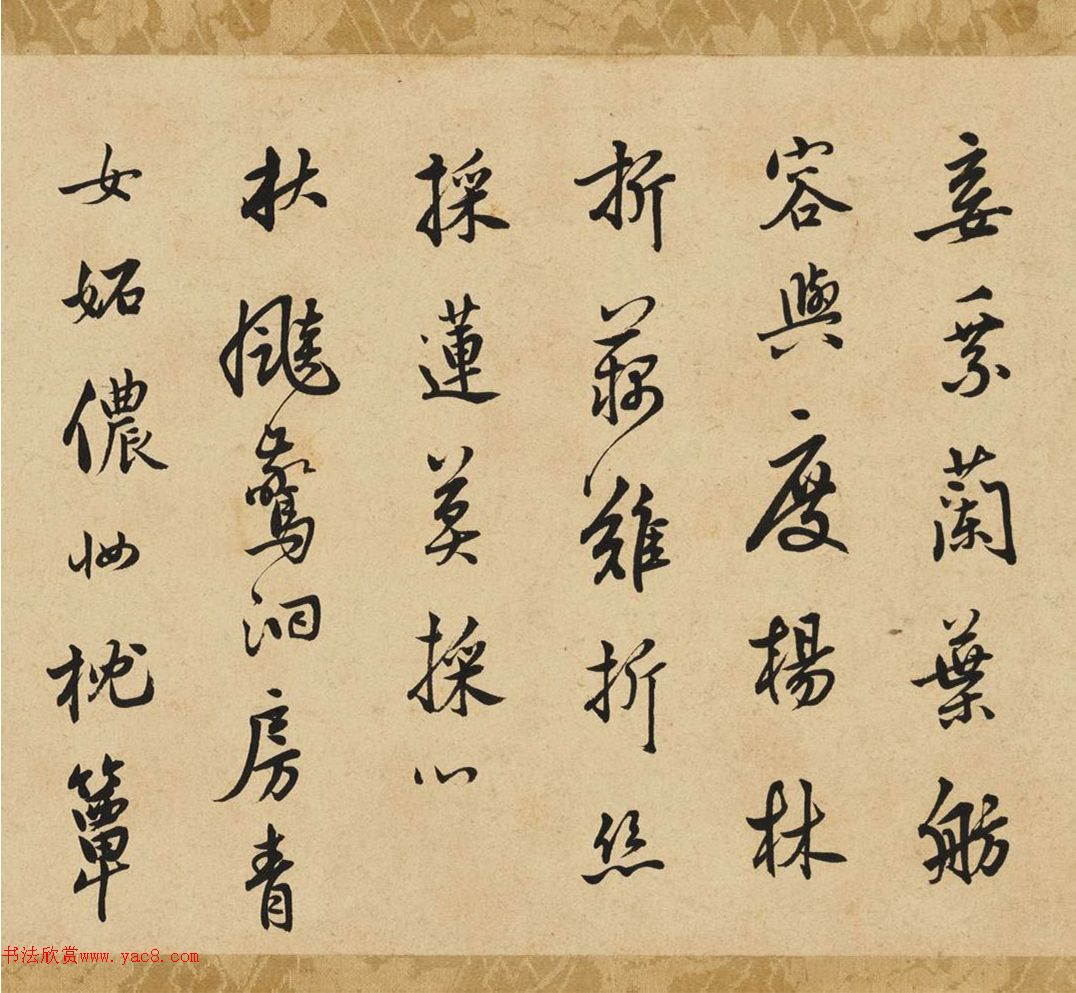 妾乘蘭葉舫
容與度楊林
折藕難折絲
採蓮莫採心
秋飚驚洞房青
女妬儂妝枕簟
书法欣赏www.yac8.com